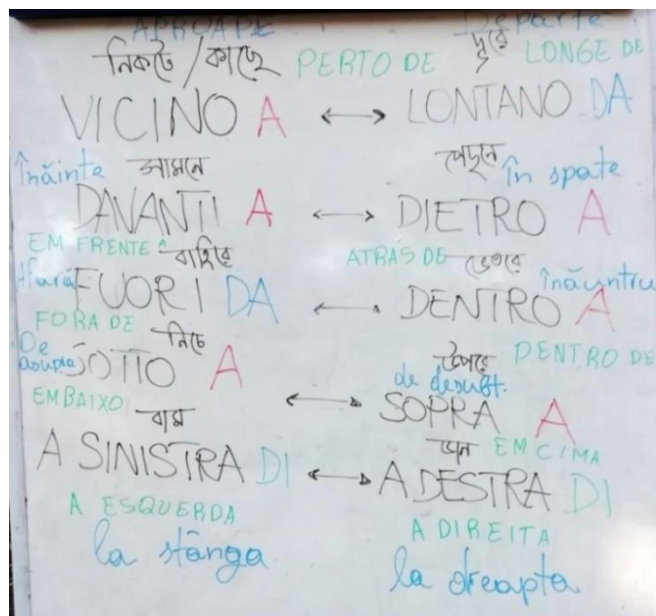 APROAPE Departe
নিকটে / কাছে PERTO DE দূরে LONGE DE
VICINO A ↔ LONTANO DA
înăinte সামনে পেছনে în spate
DAVANTI A ↔ DIETRO A
EM FRENTE A বাহিরে ATRÁS DE ভেতরে înăuntru
Afară FUORI DA ↔ DENTRO A
FORA DE নিচে উপরে DENTRO DE
De asupra SOTTO A de desubt.
EMBAIXO বাম ↔ SOPRA A
ডান EM CIMA
A SINISTRA DI ↔ A DESTRA DI
A ESQUERDA A DIREITA
la stânga la dreapta